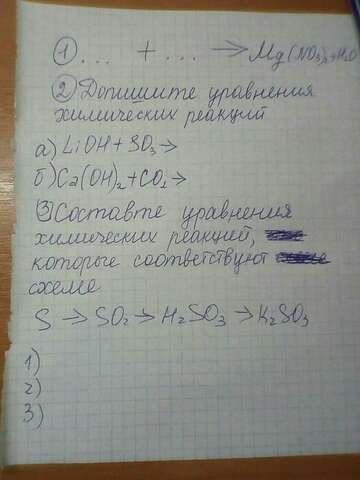 ① ... + ... → Mg(NO₃)₂+H₂O
② Допишите уравнения
химических реакций
а) LiOH + SO₃→
б) Ca(OH)₂+CO₂→
③ Составте уравнения
химических реакций,
которые соответствуют
схеме
S → SO₂ → H₂SO₃ → K₂SO₃
1)
2)
3)